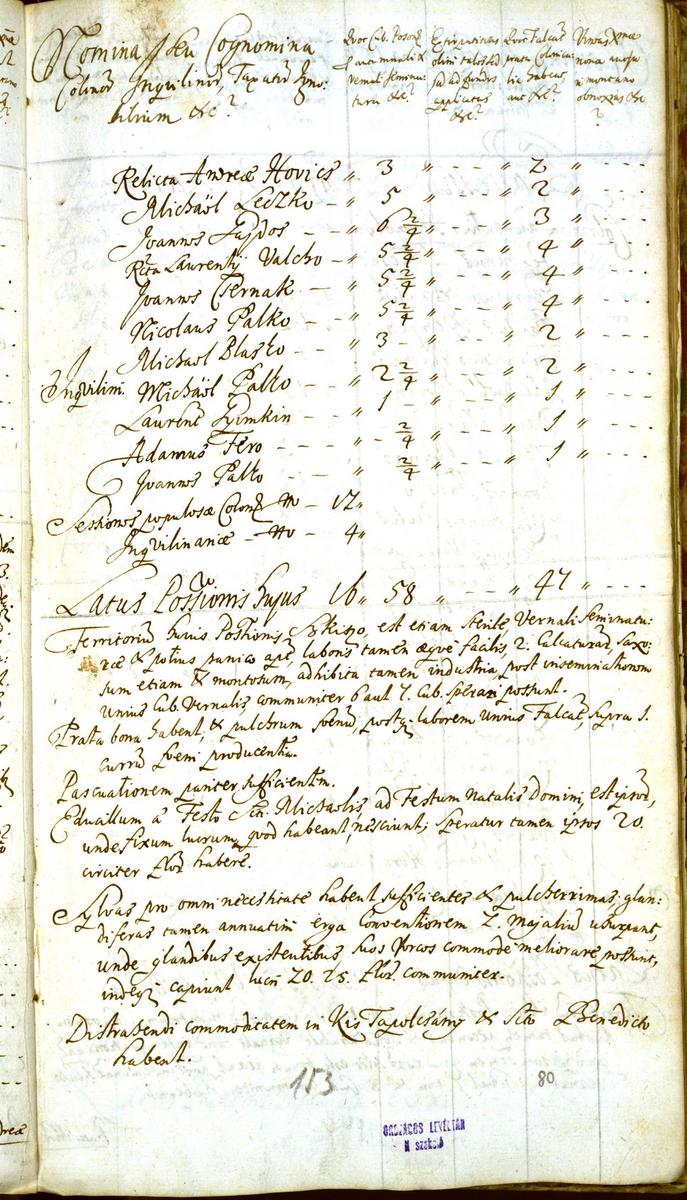 Nomina seu Cognomina
Colonorũ Inquilinorũ, Taxatorũ Igno:
bilium &c?
Quot Cub. Poson.
autumnali &
vernali seminatu
tura &c?
Extirpaturas
olim
ad
applicatas
&c?
Quot Falcat
prata Colonica:
lia habeat
aut &c?
Vineas
nona
montano
obnoxias &c
?
Relicta Andreæ Hovics „ 3 „ - - - „ 2 „ - - -
Michaël Leczko - „ 5 „ - - - „ 2 „ - - -
Joannes Gajdos - „ 6 2/4 „ - - - „ 3 „ - - -
Rcta Laurentÿ Valcho - „ 5 2/4 „ - - - „ 4 „ - - -
Joannes Csernak - - „ 5 2/4 „ - - - „ 4 „ - - -
Nicolaus Palko - - „ 5 2/4 „ - - - „ 4 „ - - -
Michael Blasko - - „ 3 - „ - - - „ 2 „ - - -
Inqvilini. Michaël Palko - - „ 2 2/4 „ - - - „ 2 „ - - -
Laurent - - „ 1 - „ - - - „ 1 „ - - -
Adamus Fero - - - „ - 2/4 „ - - - „ 1 „ - - -
Joannes Palko - - - „ 2/4 „ - - - „ 1 „ - - -
Sessiones populosæ Colon. No - 12 „
Inqvilinariæ - No - 4 „
Latus Possionis hujus 16 „ 58 „ - - - „ 47 „ - - -
Territoriũ huius Possionis, est etiam sterile, Vernali seminatu:
ræ & potius panico apt, laboris tamen æque facilis, 2. Calcaturarũ, saxo:
sum etiam & montosum, adhibita tamen industria, post inseminationem
Unius Cub. Vernalis communiter 6 aut 7. Cub. sperari possunt.
Prata bona habent, & pulchrum fœnũ, postq laborem Unius Falcat, supra 1.
currũ fœni producentia.
Pascuationem pariter sufficientem.
Educillum a Festo Scti Michaelis, ad Festum Natalis Domini, est ipsorũ,
unde fixum lucrum, quod habeant, nesciunt; speratur tamen ipsos 20.
circiter flor habere.
Sylvas pro omni necessitate habent sufficientes & pulcherrimas, glan:
diferas tamen annuatim erga Conventionem 2. Majaliũ usurpant,
unde glandibus existentibus, suos Porcos commode meliorare possunt,
indeq capiunt lucri 20. 25. flor. communiter.
Distrahendi commoditatem in Kis Tapolcsány & Scto Benedicto
habent.
153
80
ORSZÁGOS LEVÉLTÁR
N szekció